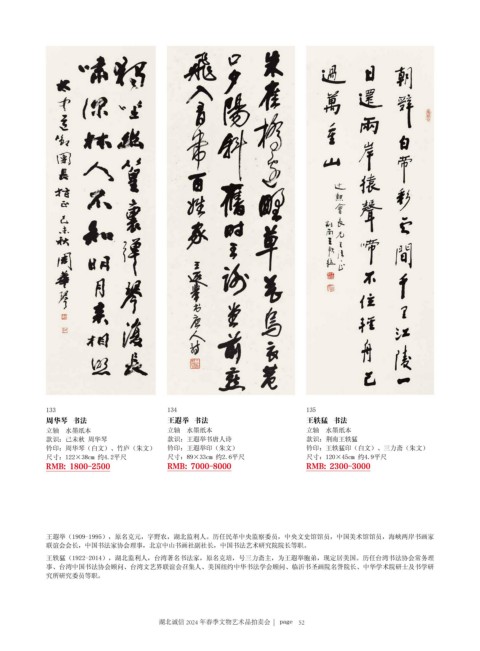 獨坐幽篁裏彈琴復長
嘯深林人不知明月来相照
己未秋 周華琴
朱雀橋邊野草花烏衣巷
口夕陽斜舊时王谢堂前燕
飛入尋常百姓家
王遐舉书唐人诗
朝辭白帝彩云間千里江陵一
日還兩岸猿聲啼不住輕舟已
過萬重山
荆南王軼猛
133
周华琴　书法
立轴　水墨纸本
款识：己未秋 周华琴
钤印：周华琴（白文）、竹庐（朱文）
尺寸：122×38cm 约4.2平尺
RMB: 1800-2500
134
王遐举　书法
立轴　水墨纸本
款识：王遐举书唐人诗
钤印：王遐举印（朱文）
尺寸：89×33cm 约2.6平尺
RMB: 7000-8000
135
王轶猛　书法
立轴　水墨纸本
款识：荆南王轶猛
钤印：王轶猛印（白文）、三力斋（朱文）
尺寸：120×45cm 约4.9平尺
RMB: 2300-3000
王遐举（1909-1995），原名克元，字野农，湖北监利人。历任民革中央监察委员，中央文史馆馆员，中国美术馆馆员，海峡两岸书画家
联谊会会长，中国书法家协会理事，北京中山书画社副社长，中国书法艺术研究院院长等职。
王轶猛（1922-2014），湖北监利人，台湾著名书法家，原名克培，号三力斋主，为王遐举胞弟，现定居美国。历任台湾书法协会常务理
事、台湾中国书法协会顾问、台湾文艺界联谊会召集人、美国纽约中华书法学会顾问、临沂书圣画院名誉院长、中华学术院研士及书学研
究所研究委员等职。
湖北诚信 2024 年春季文物艺术品拍卖会 | page 52